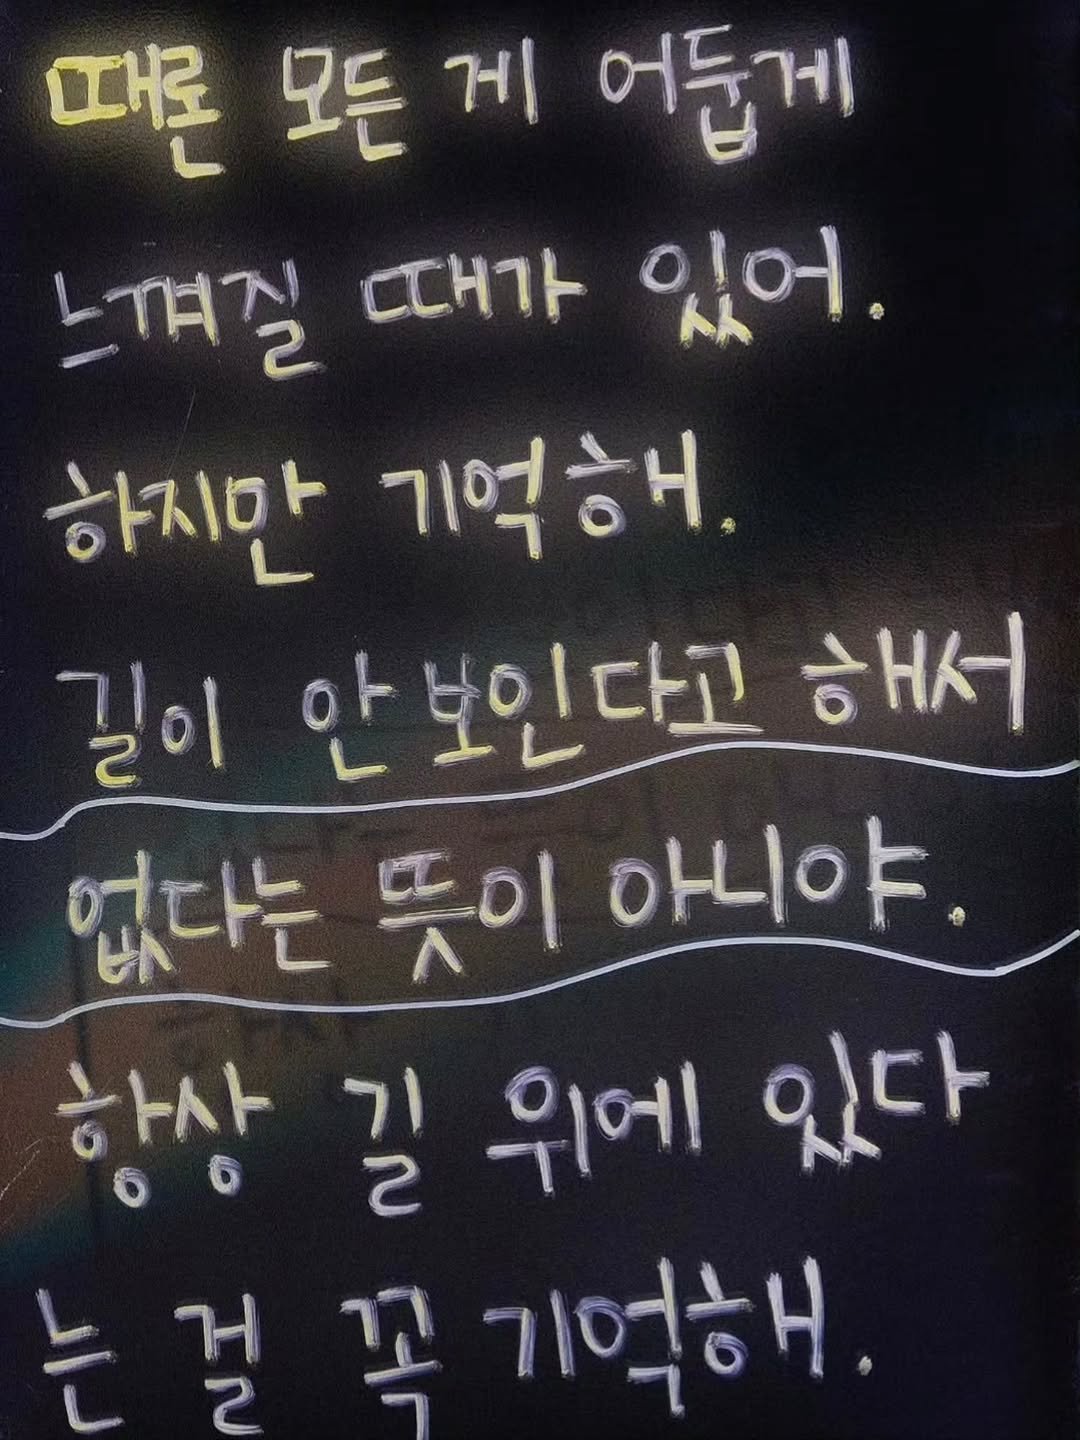 때론 모든 게 어둡게
느껴질 때가 있어.
하지만 기억해.
길이 안 보인다고 해서
없다는 뜻이 아니야.
항상 길 위에 있다
는 걸 꼭 기억해.